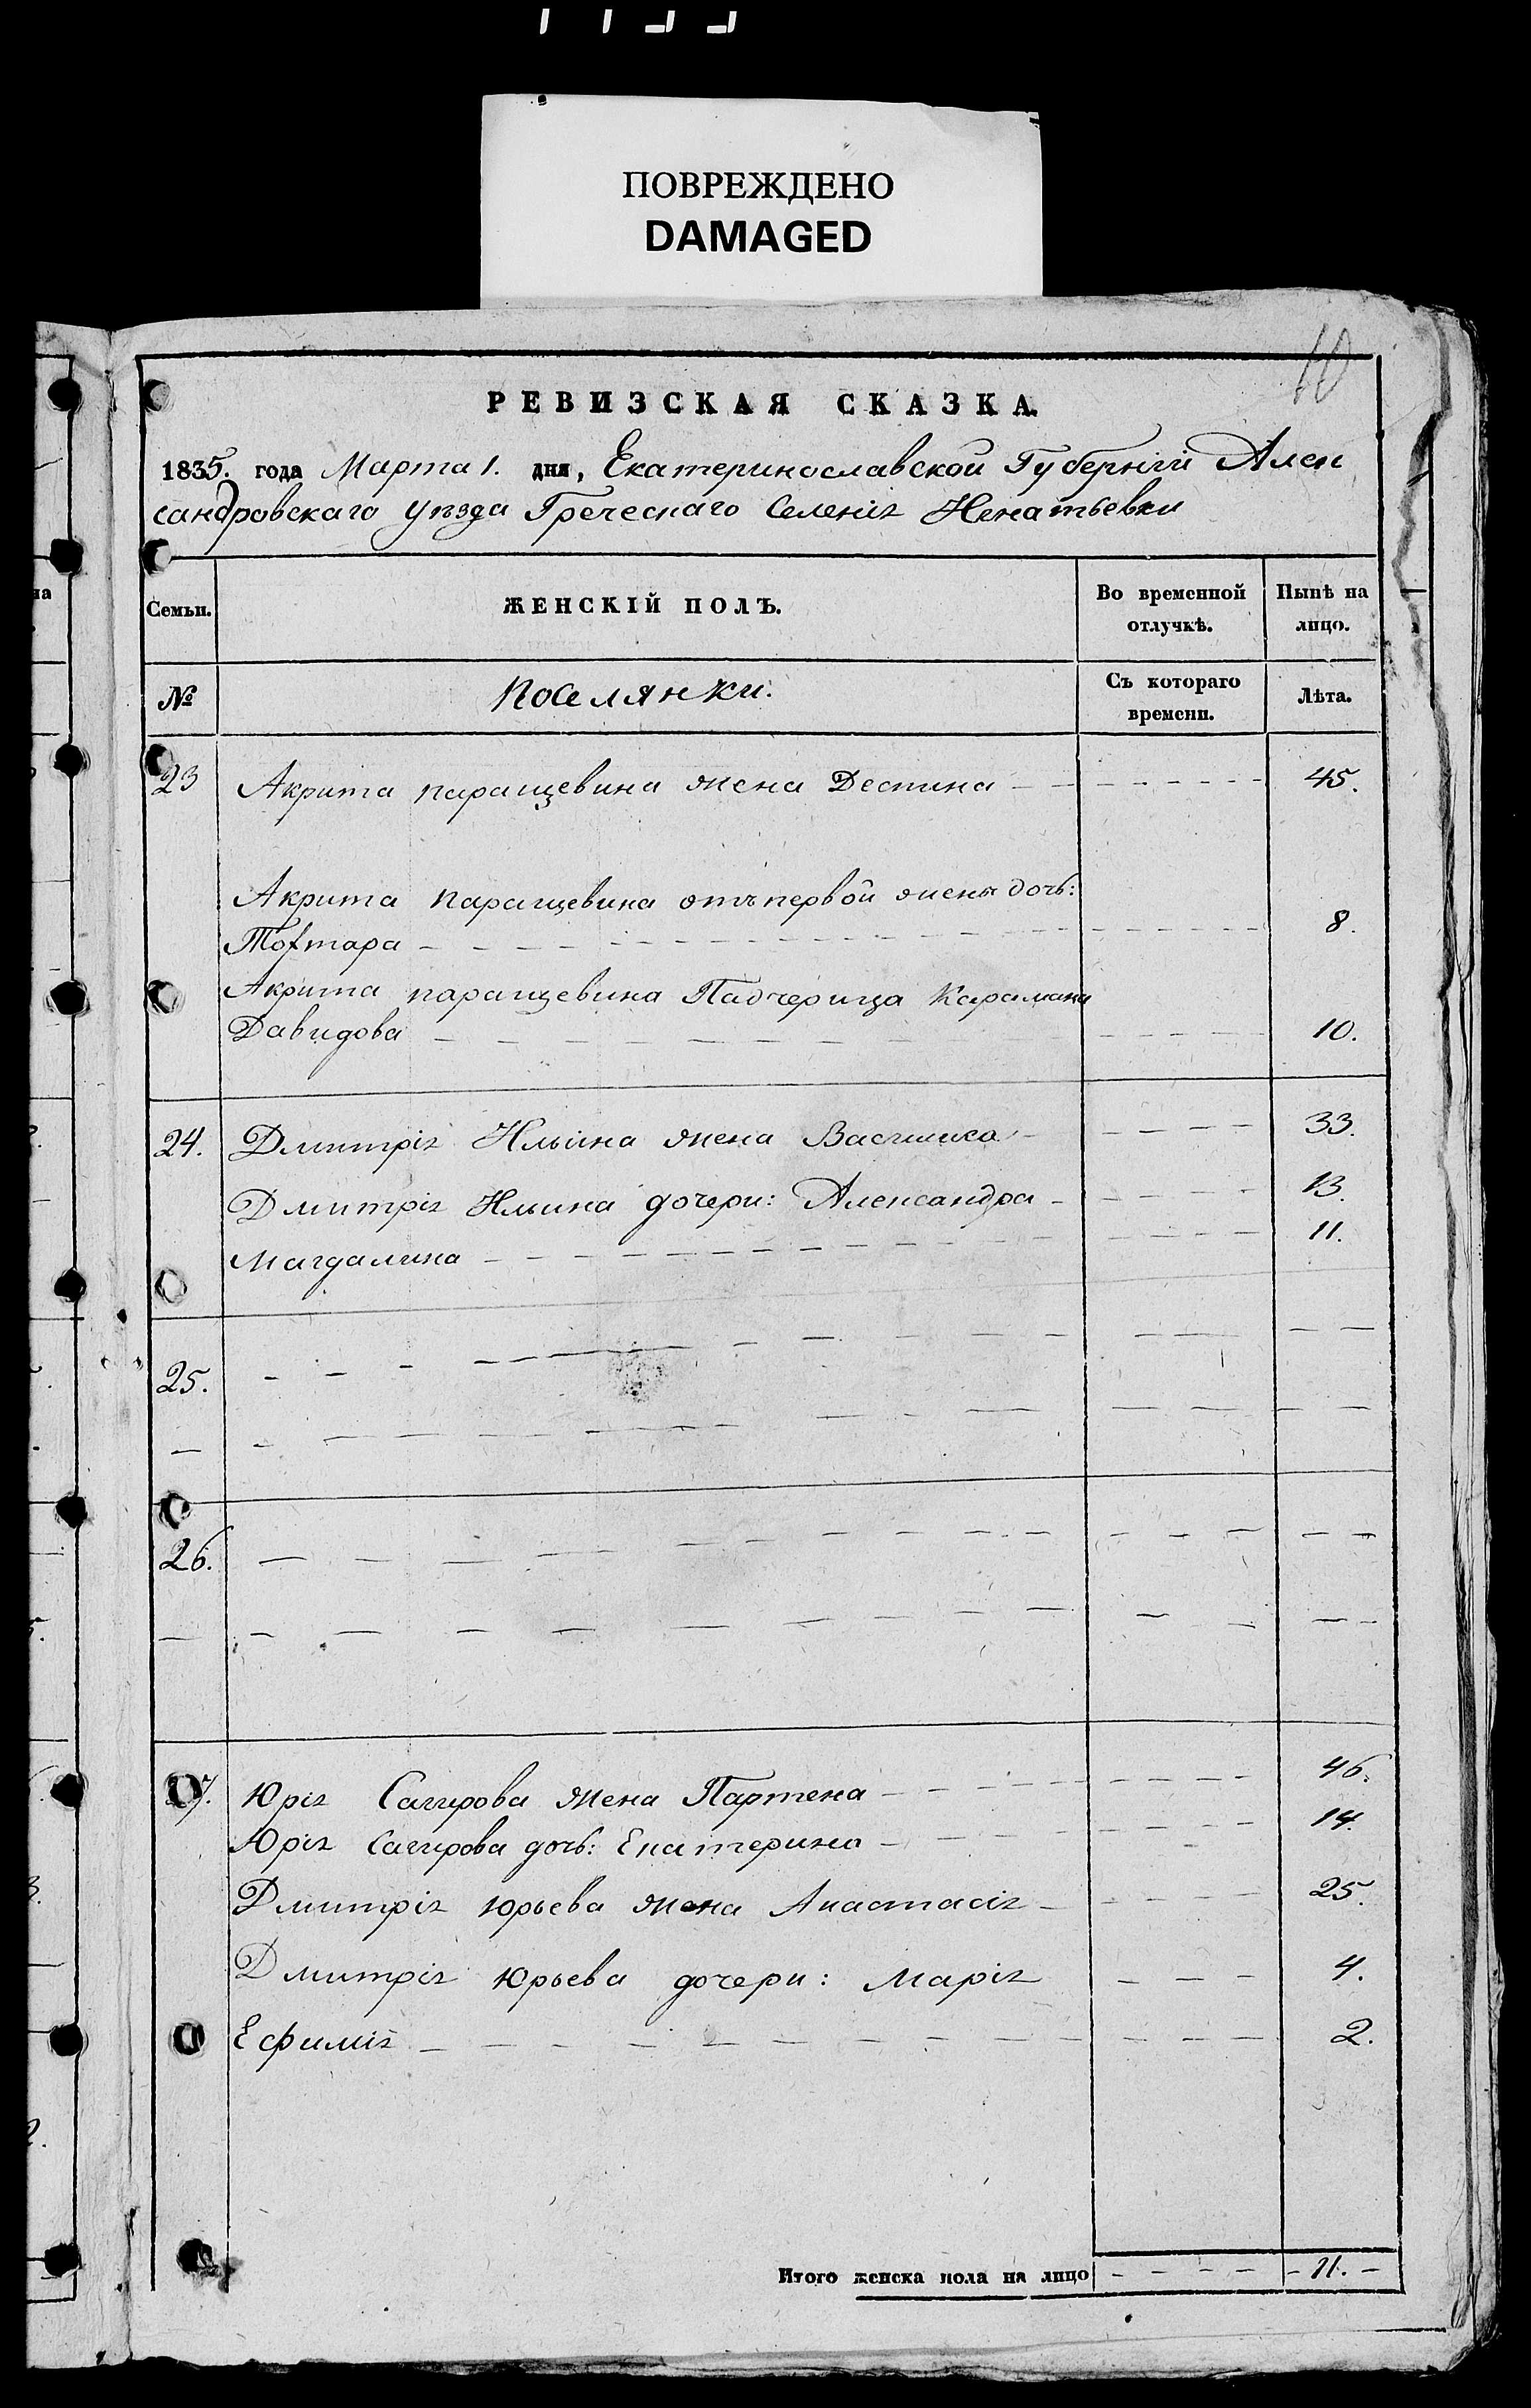 ПОВРЕЖДЕНО
DAMAGED
10
РЕВИЗСКАЯ СКАЗКА.
1835. года Марта 1. дня, Екатеринославской Губернïи Алек
сандровскаго уѣзда Греческаго Селенiя Игнатьевки
Семьи. ЖЕНСКІЙ ПОЛЪ. Во временной отлучкѣ. Нынѣ на лицо.
№ Поселянки. Съ котораго времени. Лѣта.
23 Акрита паращевина жена Деспина 45.
Акрита паращевина отъ первой жены дочь:
8.
Акрита паращевина Падчерица Карамана
Давидова 10.
24. Дмитрія Ильина жена Василика 33.
Дмитрія Ильина дочери: Александра 13.
Магдалина 11.
25.
26.
27. Юрія Сагирова жена Партена 46.
Юрія Сагирова дочь: Екатерина 14.
Дмитрія Юрьева жена Анастасія 25.
Дмитрія Юрьева дочери: Марія 4.
Ефимія 2.
Итого женска пола на лицо 11.